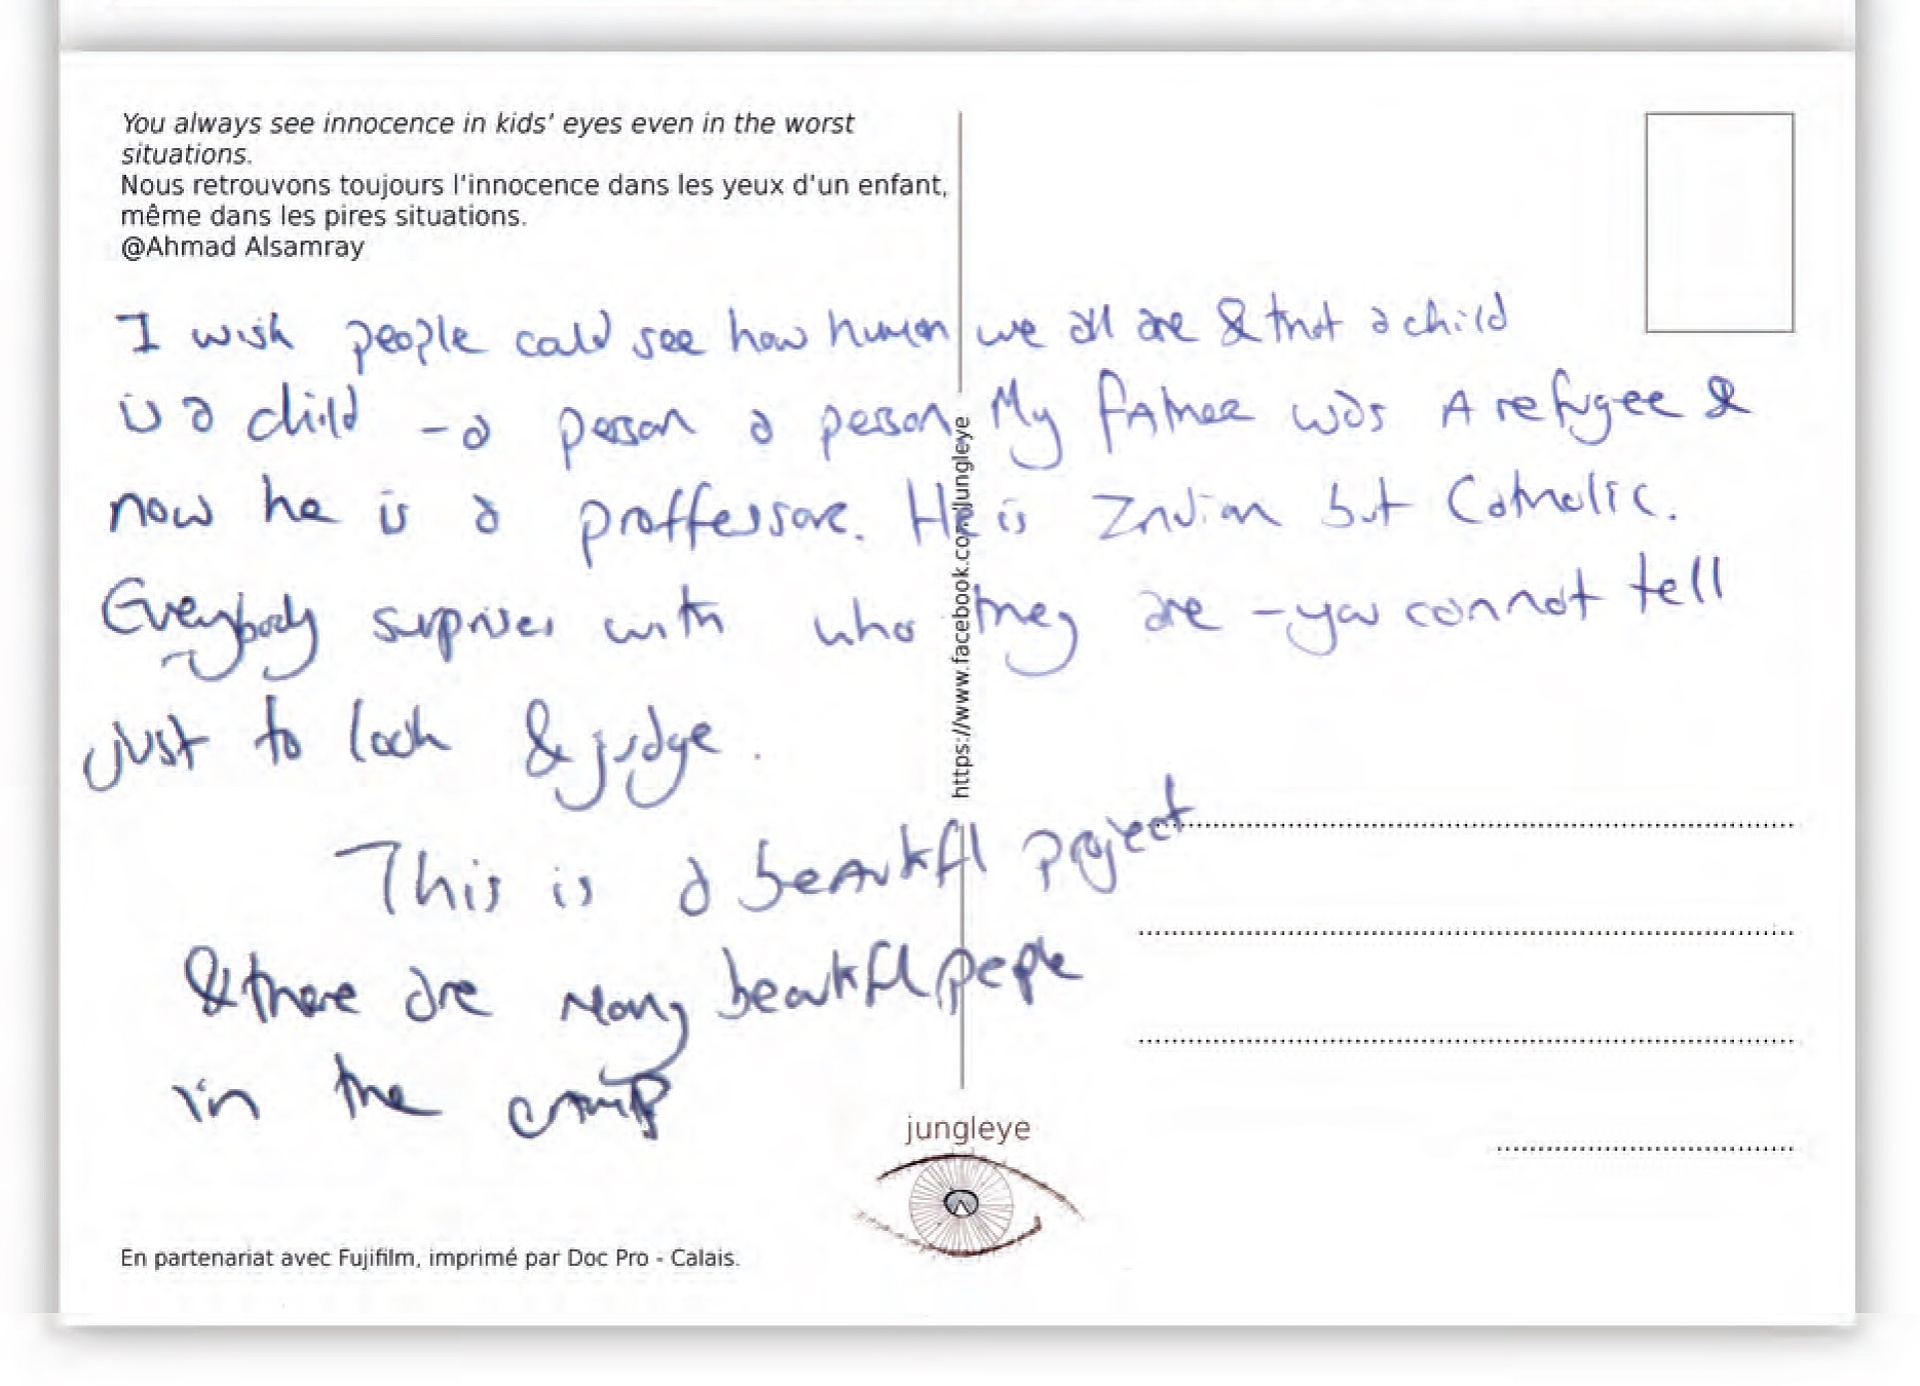 You always see innocence in kids' eyes even in the worst
situations.
Nous retrouvons toujours l'innocence dans les yeux d'un enfant,
même dans les pires situations.
@Ahmad Alsamray
I wish people could see how human we all are & that a child
is a child - a person a person. My father was A refugee &
now he is a proffessor. He is Indian but Catholic.
Everybody surprises with who they are - you cannot tell
just to look & judge.
This is a beautiful project
& there are many beautiful people
in the camp
https://www.facebook.com/Jungleye
jungleye
En partenariat avec Fujifilm, imprimé par Doc Pro - Calais.